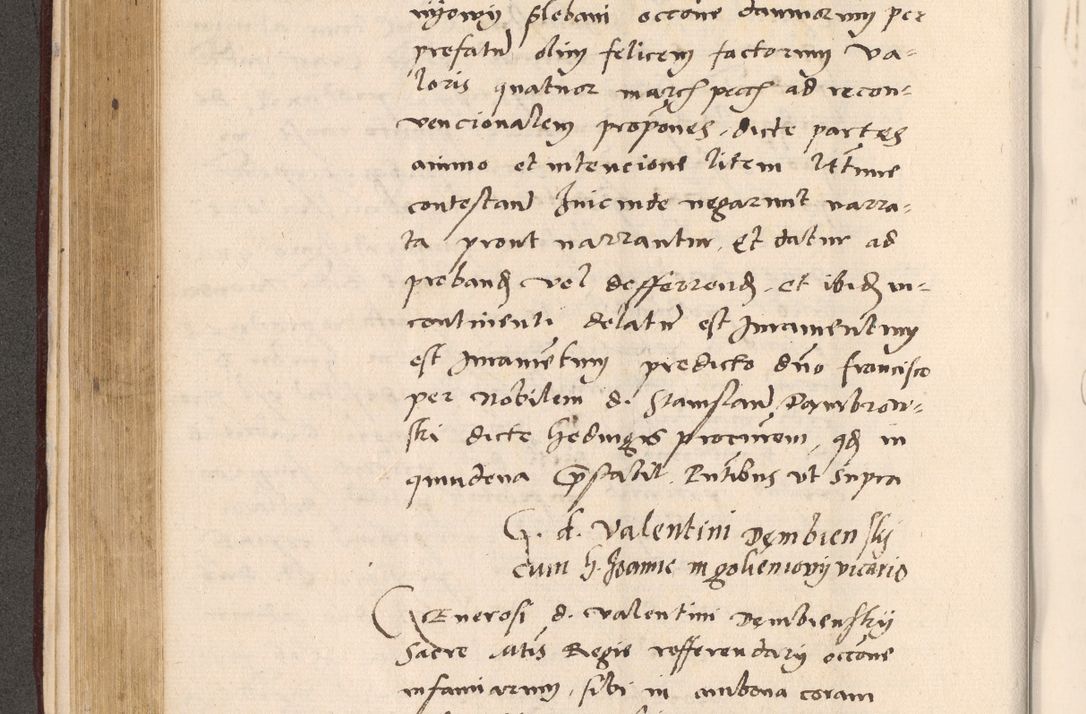 nyowy plebani occone damnorum per
prefatum olim felicem factorum va-
loris quatuor march pecch ad recon-
vencionalem propones, dicte partes
animo et intencione litem l[itti]me
contestand hincinde negarunt narra-
ta pront narrantur, Et datur ad
proband vel defferrend, et ibid in-
continenti delatum est Juramentum
est Juramentum predicto dno francisco
per Nobilem d. Stanislaum Dambrow-
ski dicte hedwigis procurem, qd in
quindena Prestabit Pntibus ut supra
G. d. Valentini Dembiensky
cum h. Joanne in goleniowy vicario
GEnerosi d. Valentini Dembiensky
Sacre Mtis Regie refferendary occone
infamiarum, sibi in ambona coram